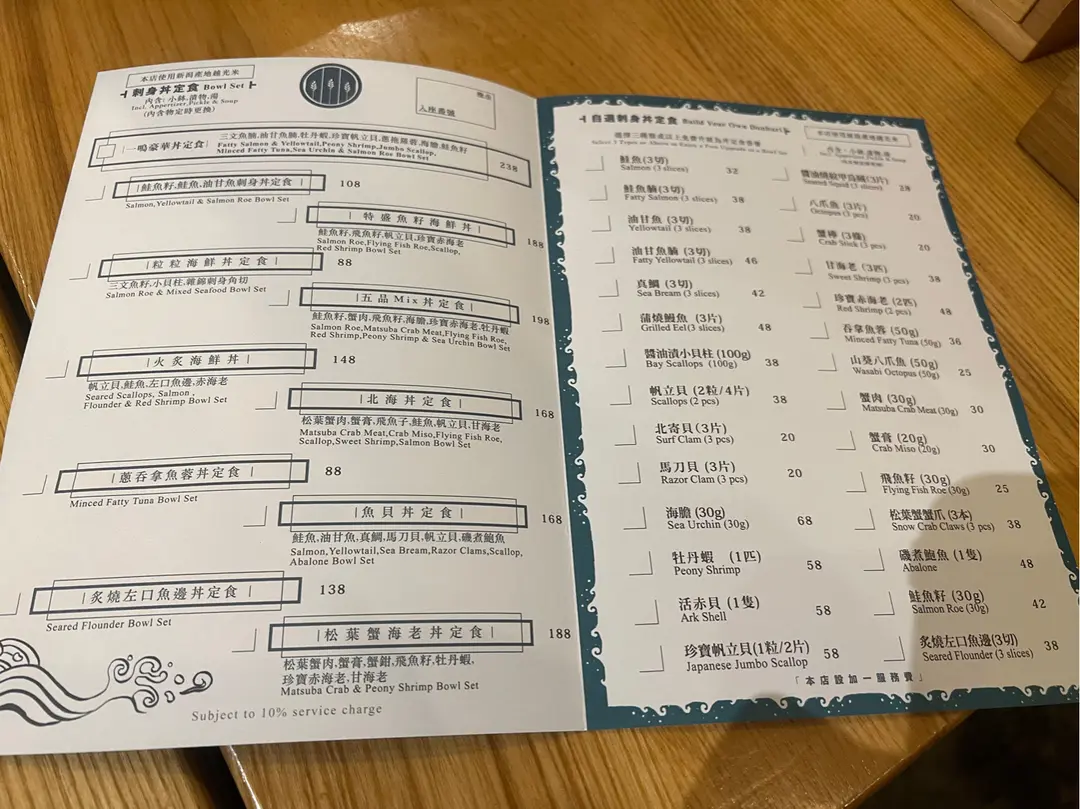 本店使用新潟產地越光米
刺身丼定食 Bowl Set
內含: 小缽,漬物,湯
Incl. Appertizer,Pickle & Soup
(內含物定時更換)
入座番號
一鳴豪華丼定食
三文魚腩,油甘魚腩,牡丹蝦,珍寶帆立貝,蔥拖羅蓉,海膽,鮭魚籽
Fatty Salmon & Yellowtail,Peony Shrimp,Jumbo Scallop,
Minced Fatty Tuna,Sea Urchin & Salmon Roe Bowl Set
238
|鮭魚籽,鮭魚,油甘魚刺身丼定食| 108
Salmon,Yellowtail & Salmon Roe Bowl Set
|特盛魚籽海鮮丼| 188
鮭魚籽,飛魚籽,帆立貝,珍寶赤海老
Salmon Roe,Flying Fish Roe,Scallop,
Red Shrimp Bowl Set
|粒粒海鮮丼定食| 88
三文魚籽,小貝柱,雜錦刺身角切
Salmon Roe & Mixed Seafood Bowl Set
|五品Mix丼定食| 198
鮭魚籽,蟹肉,飛魚籽,海膽,珍寶赤海老,牡丹蝦
Salmon Roe,Matsuba Crab Meat,Flying Fish Roe,
Red Shrimp,Peony Shrimp & Sea Urchin Bowl Set
|火炙海鮮丼| 148
帆立貝,鮭魚,左口魚邊,赤海老
Seared Scallops, Salmon ,
Flounder & Red Shrimp Bowl Set
|北海丼定食| 168
松葉蟹肉,蟹膏,飛魚子,鮭魚,帆立貝,甘海老
Matsuba Crab Meat,Crab Miso,Flying Fish Roe,
Scallop,Sweet Shrimp,Salmon Bowl Set
|蔥吞拿魚蓉丼定食| 88
Minced Fatty Tuna Bowl Set
|魚貝丼定食| 168
鮭魚,油甘魚,真鯛,馬刀貝,帆立貝,磯煮鮑魚
Salmon,Yellowtail,Sea Bream,Razor Clams,Scallop,
Abalone Bowl Set
|炙燒左口魚邊丼定食| 138
Seared Flounder Bowl Set
|松葉蟹海老丼定食| 188
松葉蟹肉,蟹膏,蟹鉗,飛魚籽,牡丹蝦,
珍寶赤海老,甘海老
Matsuba Crab & Peony Shrimp Bowl Set
Subject to 10% service charge
自選刺身丼定食 Build Your Own Donburi
本店使用新潟產地越光米
鮭魚(3切)
Salmon (3 slices) 32
鮭魚腩(3切)
Fatty Salmon (3 slices) 38
油甘魚 (3切)
Yellowtail (3 slices) 38
油甘魚腩 (3切)
Fatty Yellowtail (3 slices) 46
真鯛 (3切)
Sea Bream (3 slices) 42
蒲燒鰻魚 (3片)
Grilled Eel(3 slices) 48
醬油漬小貝柱 (100g)
Bay Scallops (100g) 38
帆立貝 (2粒/4片)
Scallops (2 pcs) 38
北寄貝(3片)
Surf Clam (3 pcs) 20
馬刀貝 (3片)
Razor Clam (3 pcs) 20
海膽 (30g)
Sea Urchin (30g) 68
牡丹蝦 (1匹)
Peony Shrimp 58
活赤貝 (1隻)
Ark Shell 58
珍寶帆立貝(1粒/2片)
Japanese Jumbo Scallop 58
醬油燒紋甲烏賊(3片)
Seared Squid (3 slices) 28
八爪魚 (3片)
Octopus (3 pcs) 20
蟹棒 (3條)
Crab Stick (3 pcs) 20
甘海老 (3匹)
Sweet Shrimp (3 pcs) 38
珍寶赤海老 (2匹)
Red Shrimp (2 pcs) 48
吞拿魚蓉 (50g)
Minced Fatty Tuna (50g) 36
山葵八爪魚 (50g)
Wasabi Octopus (50g) 25
蟹肉 (30g)
Matsuba Crab Meat (30g) 30
蟹膏 (20g)
Crab Miso (20g) 30
飛魚籽 (30g)
Flying Fish Roe (30g) 25
松葉蟹蟹爪 (3本)
Snow Crab Claws (3 pcs) 38
磯煮鮑魚 (1隻)
Abalone 48
鮭魚籽 (30g)
Salmon Roe (30g) 42
炙燒左口魚邊(3切)
Seared Flounder (3 slices) 38
「本店設加一服務費」